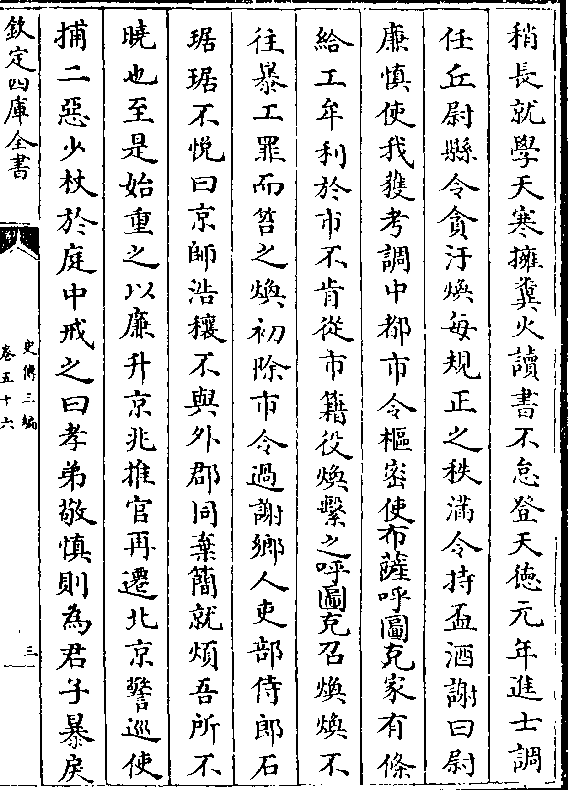 稍長就學天寒擁糞火讀書不怠登天德元年進士調
任丘尉縣令貪汙煥每規正之秩滿令持盃酒謝曰尉
廉慎使我獲考調中都市令樞密使布薩呼圖克家有條
給工牟利於市不肯從市籍役煥繫之呼圖克召煥煥不
往暴工罪而笞之煥初除市令過謝鄉人吏部侍郎石
琚琚不悅曰京師浩穰不與外郡同棄簡就煩吾所不
曉也至是始重之以廉升京兆推官再遷北京警巡使
捕二惡少杖於庭中戒之曰孝弟敬慎則為君子暴戾
欽定四庫全書
史傳三編
卷五十六
三